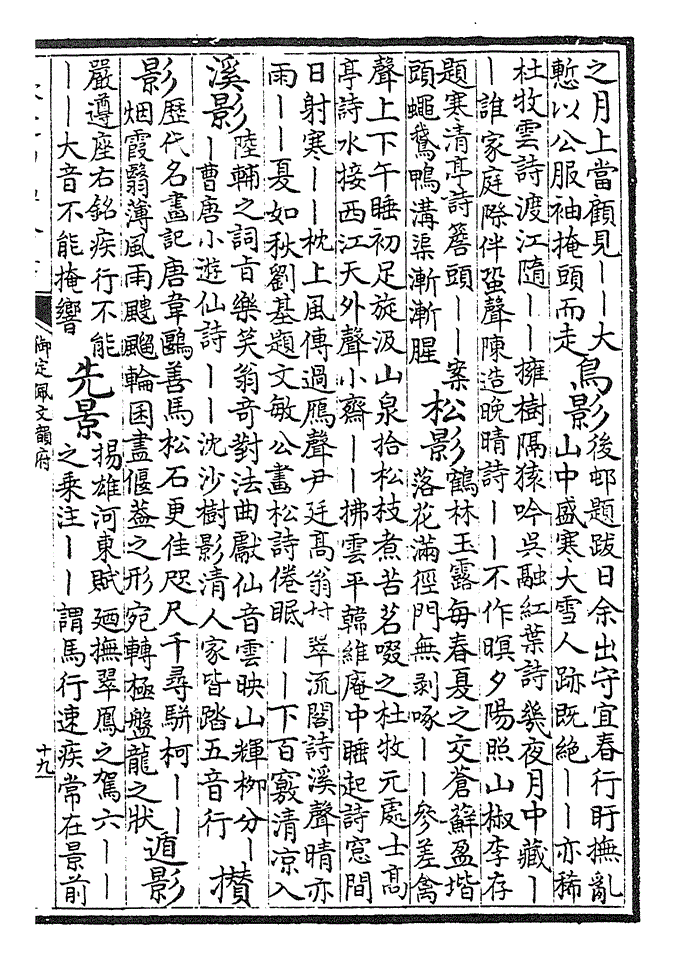 之月上當顧見｜｜大
慙以公服袖掩頭而走
鳥影
後邨題跋日余出守宜春行盱撫亂
山中盛寒大雪人跡既絕｜｜亦稀
杜牧雲詩渡江隨｜｜擁樹隔猿吟吳融紅葉詩幾夜月中藏｜
｜誰家庭際伴蛩聲陳造晚晴詩｜｜不作暝夕陽照山椒李存
題寒清亭詩簷頭｜｜案
頭蠅鵞鴨溝渠漸漸腥
松影
鶴林玉露每春夏之交蒼蘚盈堦
落花滿徑門無剥啄｜｜參差禽
聲上下午睡初足旋汲山泉拾松枝煮苦茗啜之杜牧元處士高
亭詩水接西江天外聲小齋｜｜拂雲平韓維庵中睡起詩窓間
日射寒｜｜枕上風傳過鴈聲尹廷高翁村翠流閣詩溪聲晴亦
雨｜｜夏如秋劉基題文敏公畫松詩倦眠｜｜下百竅清凉入
溪影
陸輔之詞旨樂笑翁奇對法曲獻仙音雲映山輝柳分｜
｜曹唐小遊仙詩｜｜沈沙樹影清人家皆踏五音行
攅
影
歷代名畫記唐韋鷗善馬松石更佳咫尺千尋駢柯｜｜
烟霞翳薄風雨颼飀輪囷盡偃葢之形宛轉極盤龍之狀
遁影
嚴遵座右銘疾行不能
｜｜大音不能掩響
先景
揚雄河東賦廼撫翠鳳之駕六｜｜
之乗注｜｜謂馬行速疾常在景前
御定佩文韻府
十九